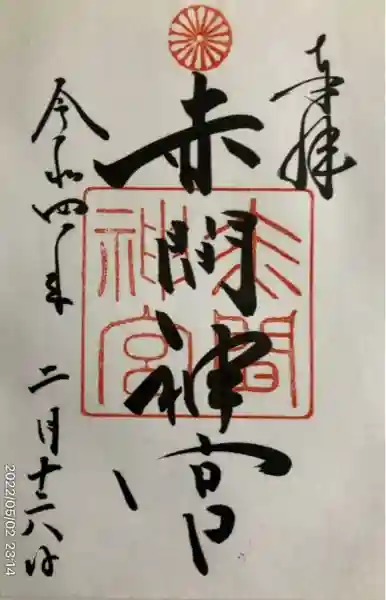 奉拝
赤間神宮
赤間
神宮
令和四年 二月十六日
2022/05/02 23:14